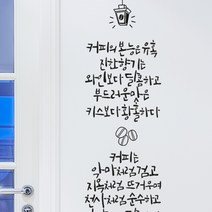 커피의 본능은 유혹
진한향기는
와인보다 달콤하고
부드러운맛은
키스보다 황홀하다
커피는
악마처럼검고
지옥처럼 뜨거우며
천사처럼 순수하고